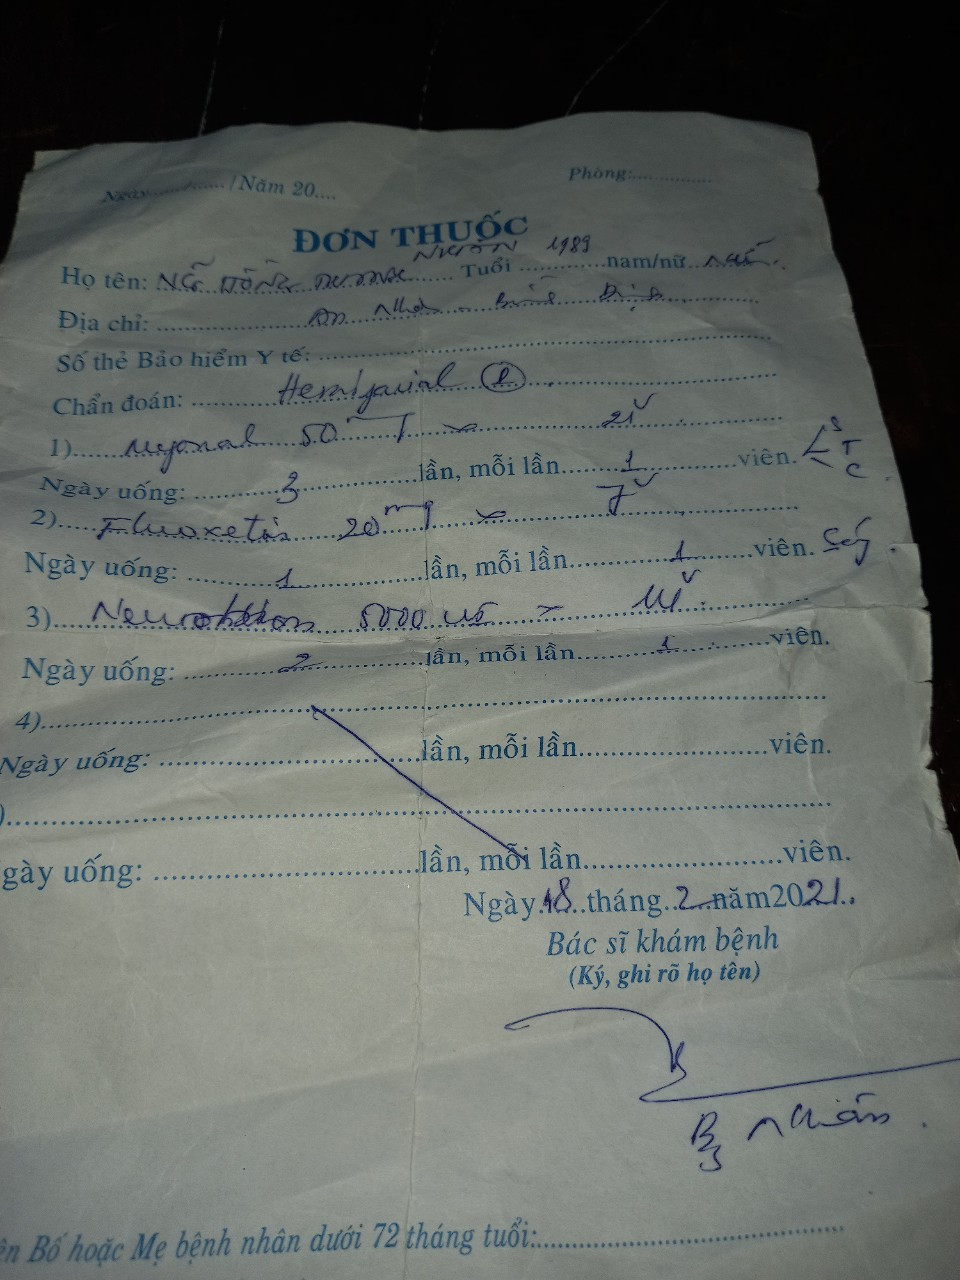 Ngày............/Năm 20....
Phòng:...............
ĐƠN THUỐC
Họ tên: NGÔ HỒNG NHƠN Tuổi 1989 nam/nữ
Địa chỉ: An Nhơn Bình Định
Số thẻ Bảo hiểm Y tế:
Chẩn đoán: Hemifacial (P)
1) Myonal 50mg x 21v
Ngày uống: 3 lần, mỗi lần 1 viên. S T C
2) Fluoxetin 20mg x 7v
Ngày uống: 1 lần, mỗi lần 1 viên. Sáng
3) Neurobion 5000 x 14v
Ngày uống: 2 lần, mỗi lần 1 viên.
4)
Ngày uống: lần, mỗi lần viên.
)
gày uống: lần, mỗi lần viên.
Ngày 18 tháng 2 năm 2021
Bác sĩ khám bệnh
(Ký, ghi rõ họ tên)
Bs
ên Bố hoặc Mẹ bệnh nhân dưới 72 tháng tuổi: